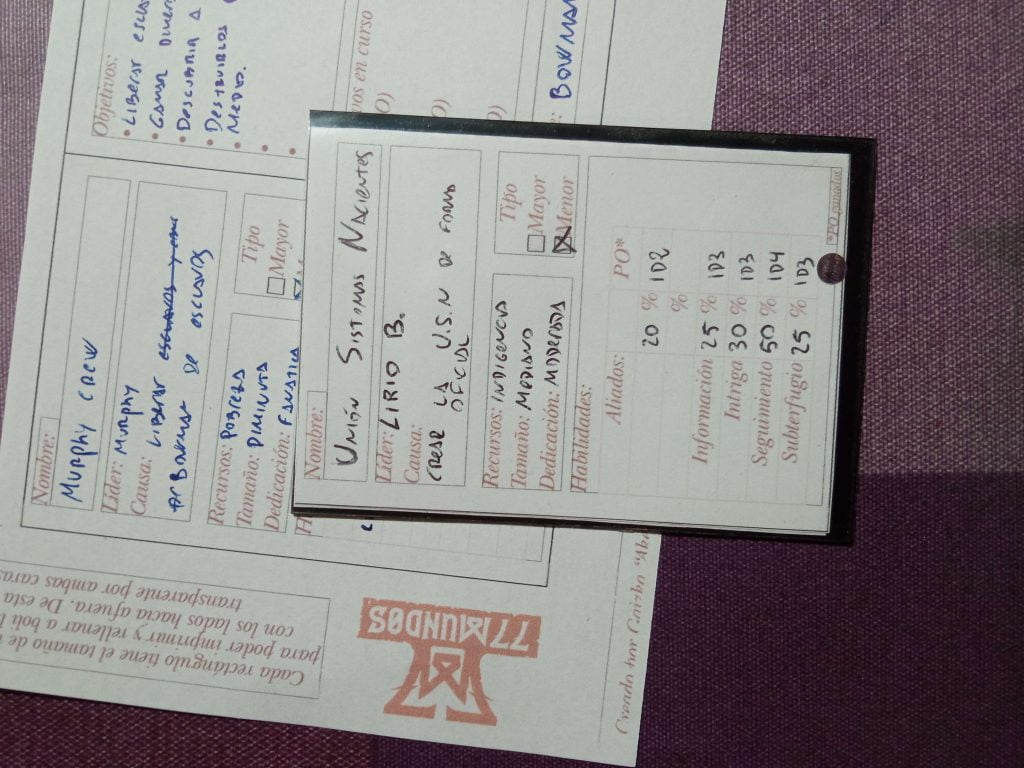 Nombre:
Unión Sistemas Nacientes
Líder: Lirio B.
Causa:
Crear la U.S.N de forma
oficial
Tipo
Mayor
Menor
Recursos: Indigencia
Tamaño: Mediano
Dedicación: Moderada
Habilidades:
Aliados: PO*
20 % 1D2
%
Información 25 % 1D3
Intriga 30 % 1D3
Seguimiento 50 % 1D4
Subterfugio 25 % 1D3
*PO ganados
Nombre:
Murphy Crew
Líder: Murphy
Causa: Liberar esclavos y
de esclavos
Recursos: Pobreza
Tamaño: Diminuta
Dedicación: Fanática
Tipo
Mayor
H
Objetivos:
• Liberar
• Ganar
• Descubrir a
• Destruirlos
Medio.
•
•
vos en curso
O)
O)
O)
Cada rectángulo tiene el tamaño de
para poder imprimir y rellenar a boli
con los lados hacia afuera. De esta
transparente por ambas caras
77
MUNDOS
Creado por